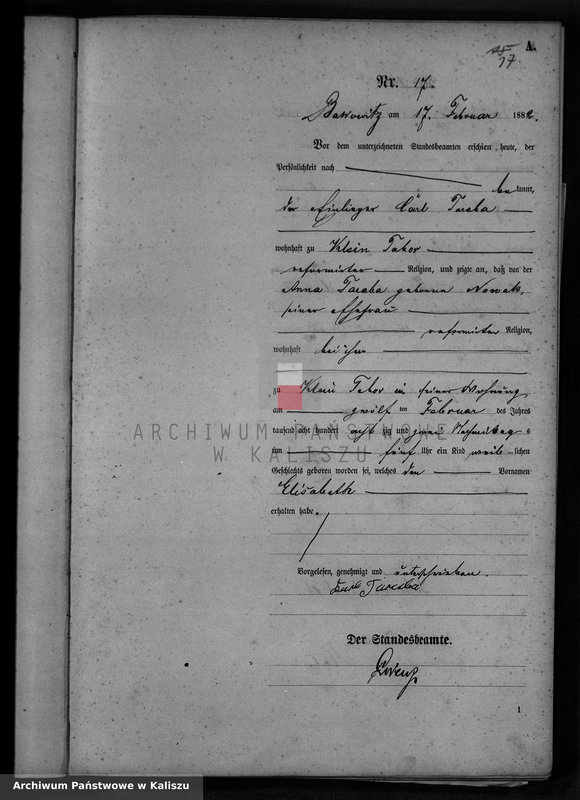 A.
17
Nr. 17.
am 17. Februar 1882.
Vor dem unterzeichneten Standesbeamten erschien heute, der
Persönlichkeit nach
bekannt,
der Einlieger Carl Taraba
wohnhaft zu Klein Tabor
reformirter Religion, und zeigte an, daß von der
Anna Taraba geborene Nowak,
seiner Ehefrau
reformirter Religion,
wohnhaft bei ihm
zu Klein Tabor in seiner Wohnung
am zwölften Februar des Jahres
tausend acht hundert achtzig und zwei Nachmittags
um fünf Uhr ein Kind weiblichen
Geschlechts geboren worden sei, welches den Vornamen
Elisabeth
erhalten habe.
Vorgelesen, genehmigt und unterschrieben.
Carl Taraba
Der Standesbeamte.
1
ARCHIWUM PAŃSTWOWE
W KALISZU
Archiwum Państwowe w Kaliszu